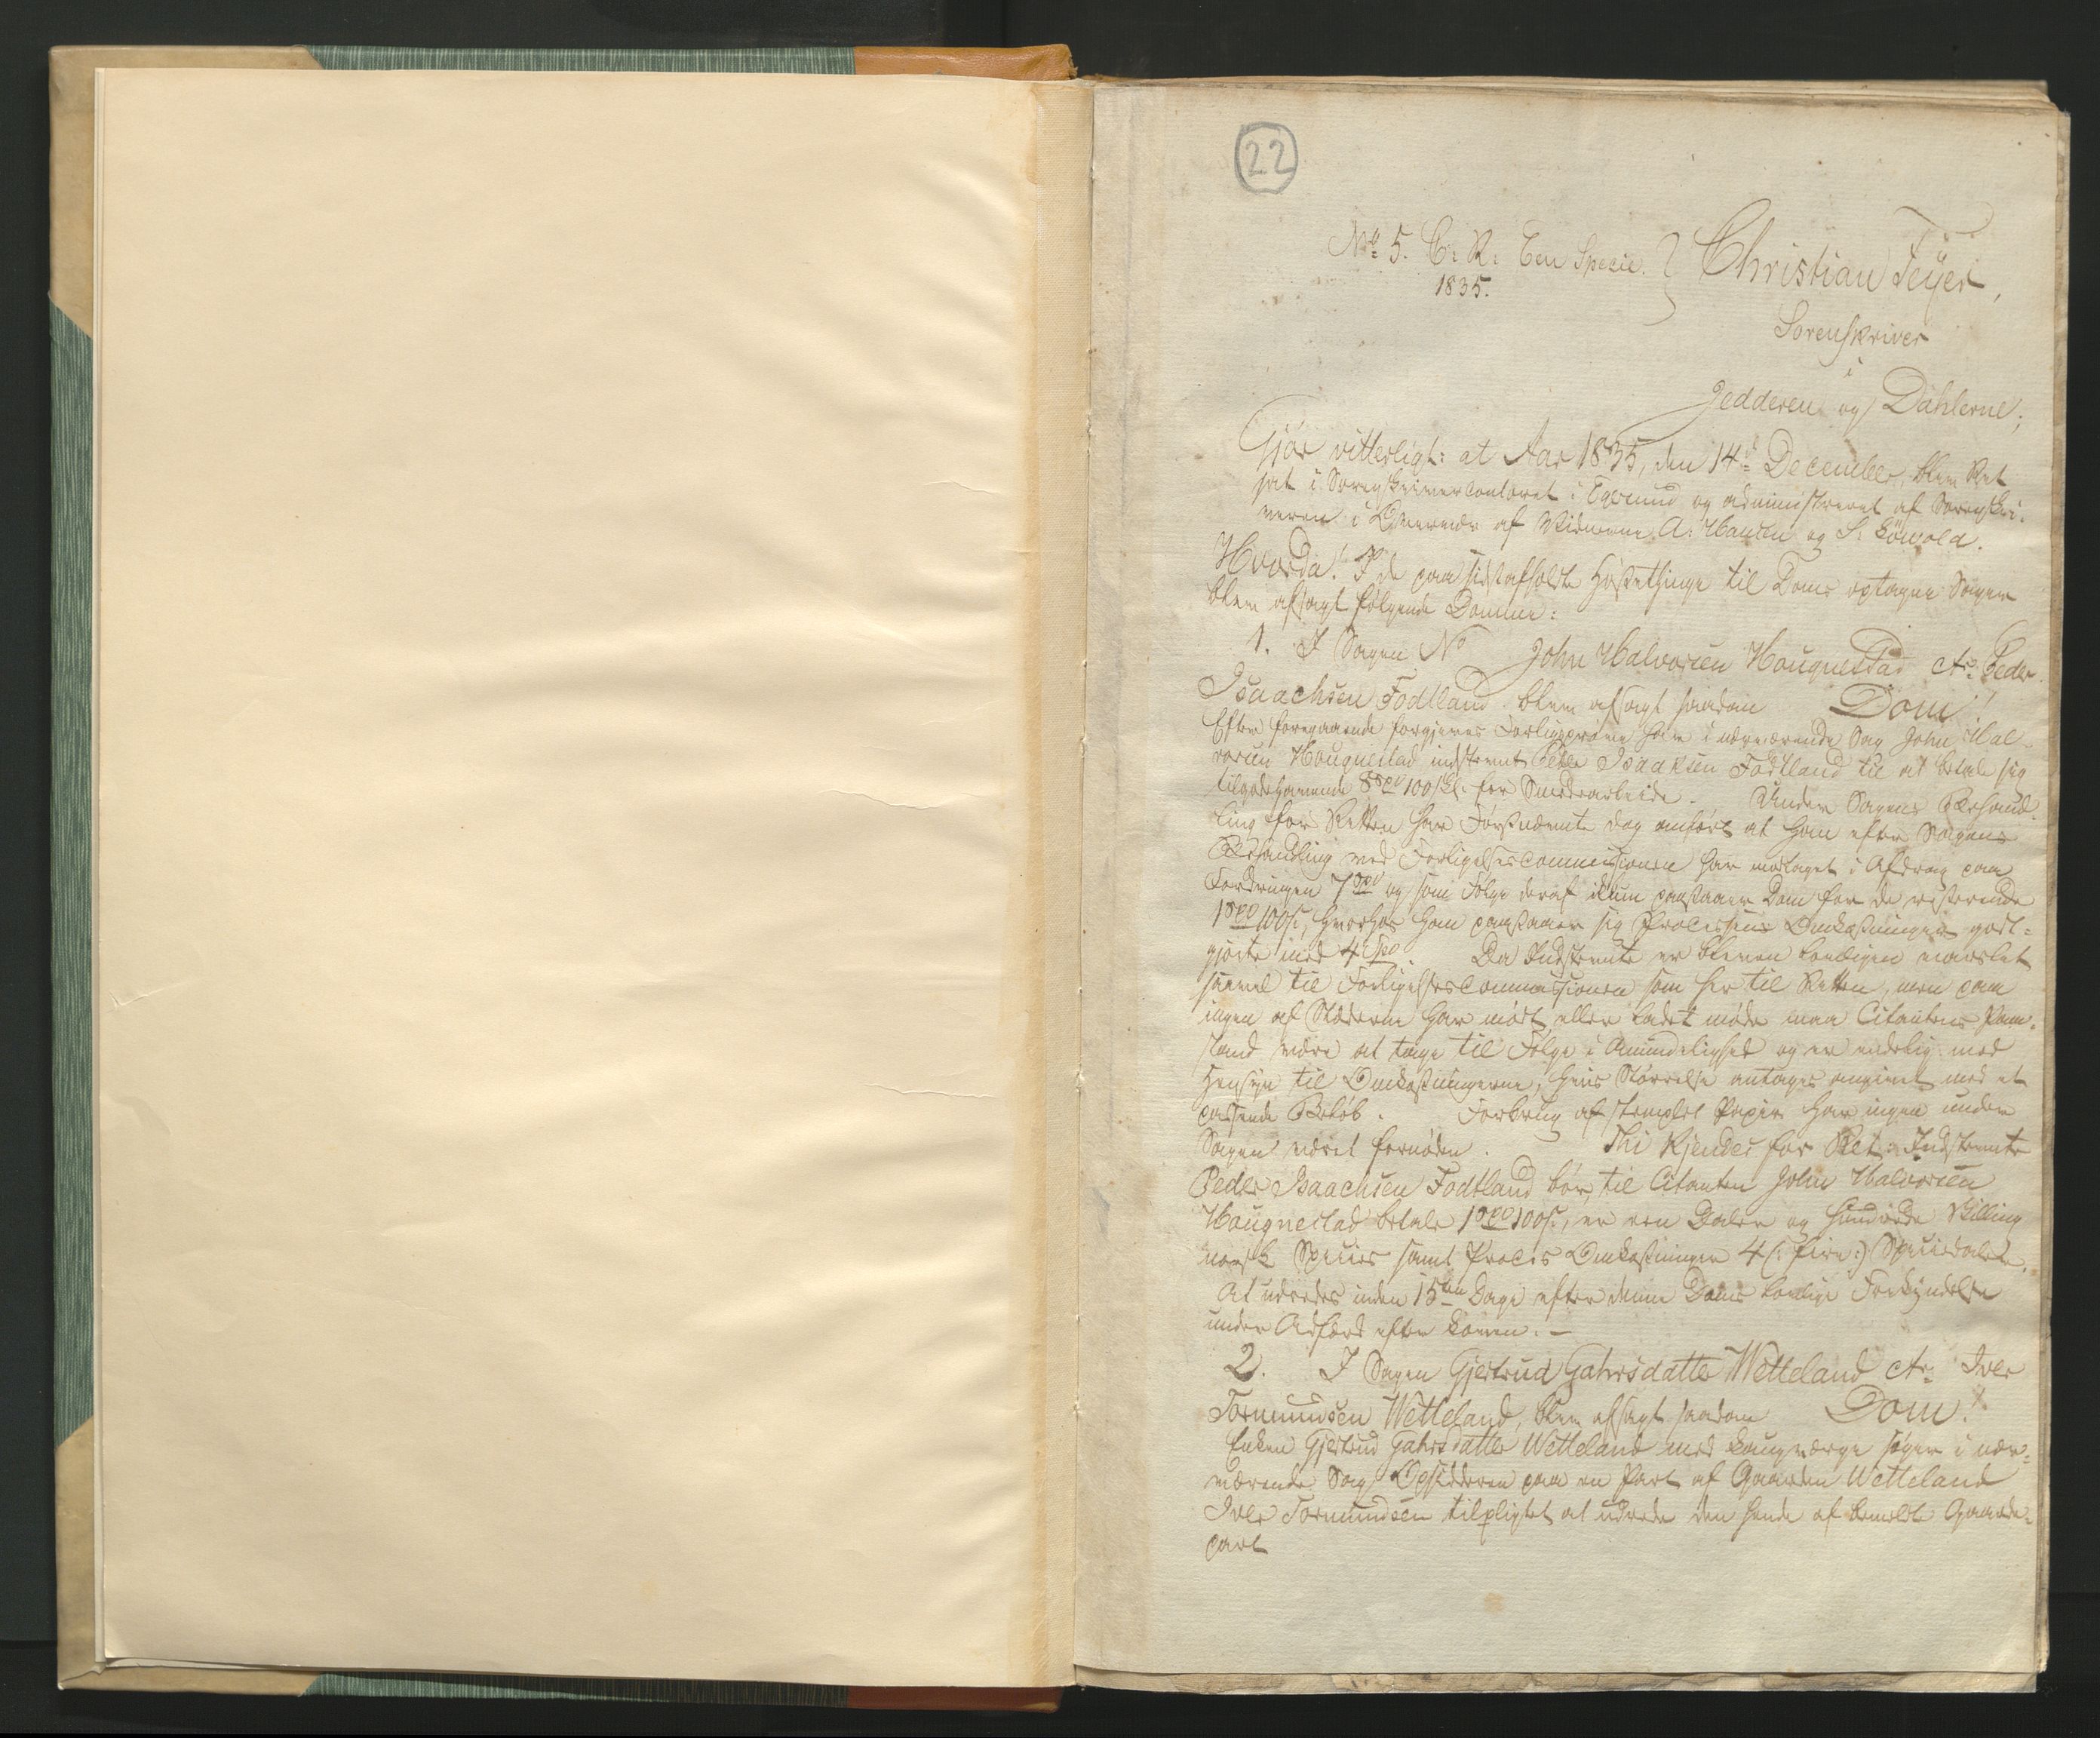 22
No 5. C: R: Een Specie.
1835.
Christian Feyer,
Sorenskriver
i
Jedderen og Dahlerne;
Gjør vitterligt: at Aar 1835, den 14de December, blev Ret
sat i Sorenskrivercontoret i Egersund og administreret af Sorenskri-
veren i Overvær af Vidnerne A. Hansen og S.
Hvorda! I de paa sidstafholdte Høstething til Doms optagne Sager
blev afsagt følgende Domme:
1. I Sagen No John Halvorsen Hougnestad Ctr Peder
Isaachsen Fodtland blev afsagt saadan Dom!
Efter foregaaende forgjeves Forligsprøve har i nærværende Sag John Hal-
vorsen Hougnestad indstevnt Peder Isaaksen Fodtland til at betale sig
tilgodehavende 8 Spd 100 Skl: for Smedearbeide. Under Sagens Behand-
ling for Retten har Førstnævnte dog anført at han efter Sagens
Behandling ved Forligelsescommissionen har modtaget i Afdrag paa
Fordringen 7 Spd og som Følge deraf kun paastaaer Dom for de resterende
1 Spd 100 s, hvorhos han paastaaer sig Processens Omkostninger godt-
gjorte med 4 Spd. Da Indstevnte er bleven lovligen varslet
saavel til Forligelsescommissionen som her til Retten, men paa
ingen af Stæderne har mødt eller ladet møde maa Citantens Paa-
stand være at tage til Følge i Anmindelighed og er endelig med
Hensyn til Omkostningerne, hvis Størrelse antages angivet med et
passende Beløb. Forbrug af stemplet Papir har ingen under
Sagen været fornøden. Thi Kjendes for Ret: Indstevnte
Peder Isaachsen Fodtland bør til Citanten John Halvorsen
Hougnestad betale 1 Spd 100 s, er een Daler og hundrede Skilling
norsk Species samt Proces Omkostninger 4 (: fire:) Speciedaler.
At udredes inden 15ten Dage efter denne Doms lovlige Forkyndelse
under Adfærd efter Loven. -
2. I Sagen Gjertrud Gahrsdatter Wetteland Ctr Iver
Tormundsen Wetteland, blev afsagt saadan Dom!
Enken Gjertrud Gahrsdatter Wetteland med Laugværge søger i nær-
værende Sag Opsidderen paa en Part af Gaarden Wetteland
Iver Tormundsen tilpligtet at udrede den hende af bemeldte Gaarde-
part